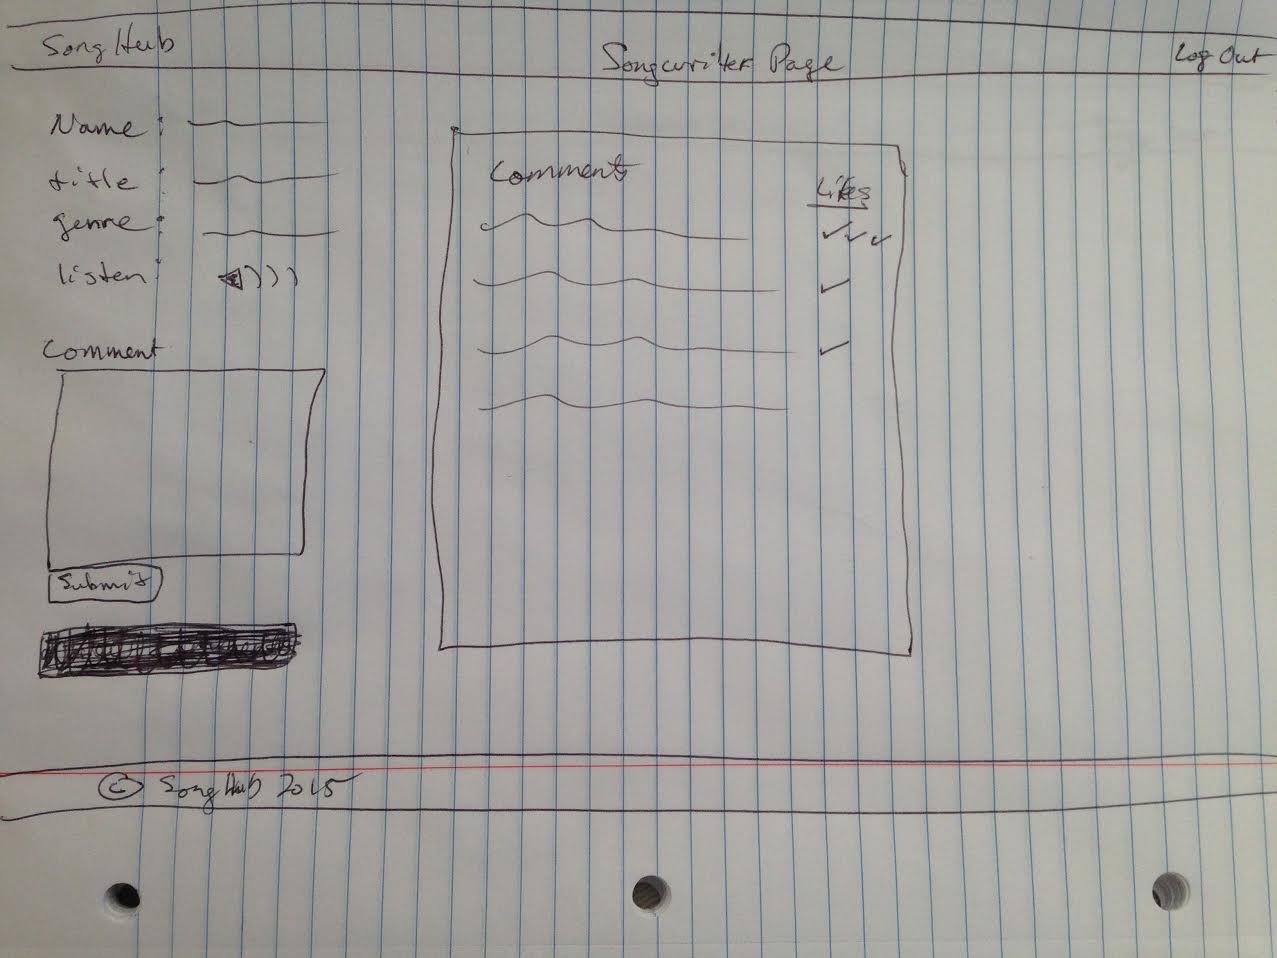 SongHub Songwriter Page Log Out
Name :
title :
genre :
listen :
Comment
Submit
Comments
Likes
© SongHub 2015